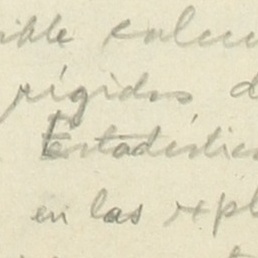 ible calcu
rígidos d
Estadístic
en las expl